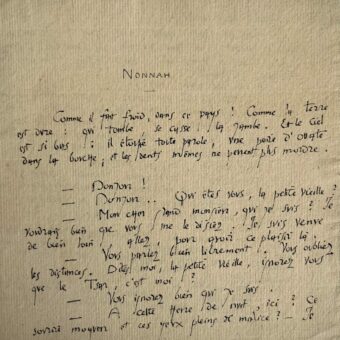 NONNAH
Comme il fait froid, dans ce pays ! Comme la terre
est dure ! qui tombe, se casse la jambe. Et le ciel
est si bas ! il étouffe toute parole, une poire d'ouate
dans la bouche, et les dents mêmes ne peuvent plus mordre.
— Bonjour !
— Bonjour... Qui êtes-vous, la petite vieille ?
— Mon cher grand monsieur, qui je suis ? Je
voudrais bien que vous me le disiez. Je suis venue
de bien loin, allez, pour avoir ce plaisir-là.
— Vous parlez bien librement. Vous oubliez
les distances. Dites-moi, la petite vieille, ignorez-vous
que le Tsar, c'est moi ?
— Vous ignorez bien qui je suis.
— A cette heure de nuit, ici ? Ce
sourire moqueur et ces yeux pleins de malice ? — Je